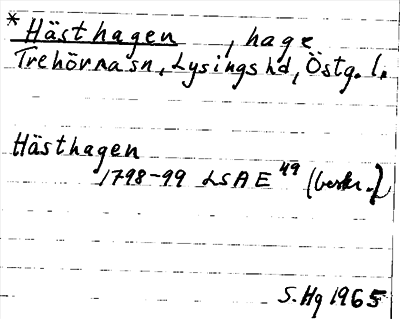 * Hästhagen , hage
Trehörna sn, Lysings hd, Östg. l.
Hästhagen
1798-99 LSA E 49 (beskr.)
S. Hg 1965